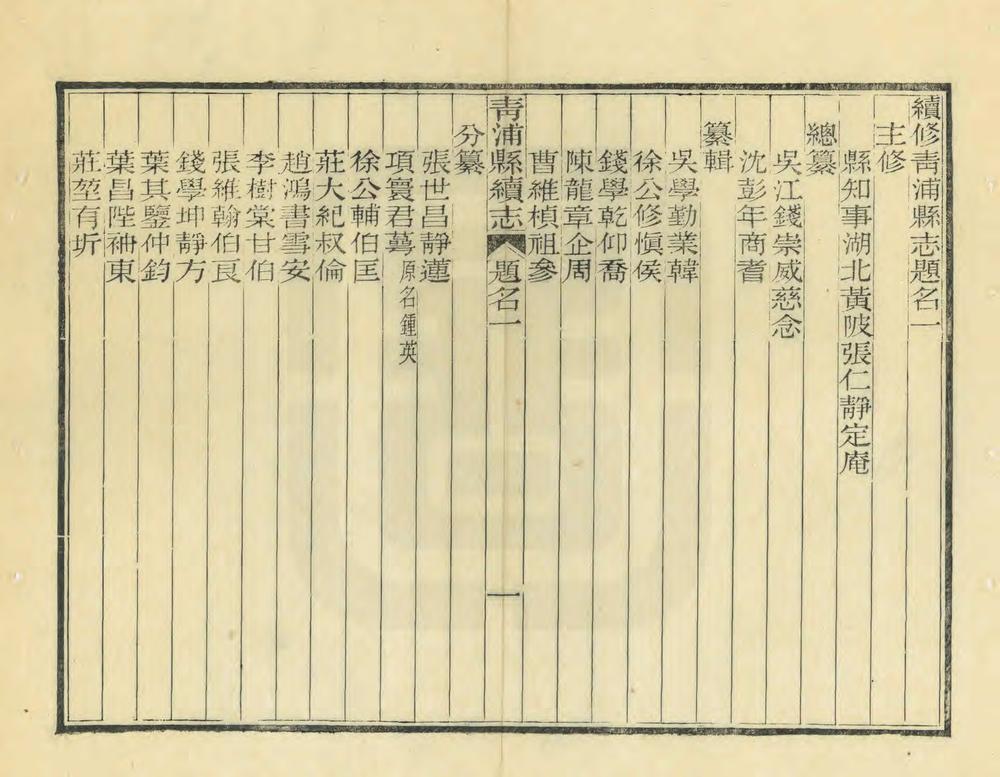 續修青浦縣志題名一
主修
縣知事湖北黃陂張仁靜定庵
總纂
吳江錢崇威慈念
沈彭年商耆
纂輯
吳學勤業韓
徐公修慎侯
錢學乾仰喬
陳龍章企周
曹維楨祖參
青浦縣續志 題名一 一
分纂
張世昌靜蓮
項寰君蕚原名鍾英
徐公輔伯匡
莊大紀叔倫
趙鴻書雪安
李樹棠甘伯
張維翰伯良
錢學坤靜方
葉其鑒仲鈞
葉昌陛神東
莊堃有圻